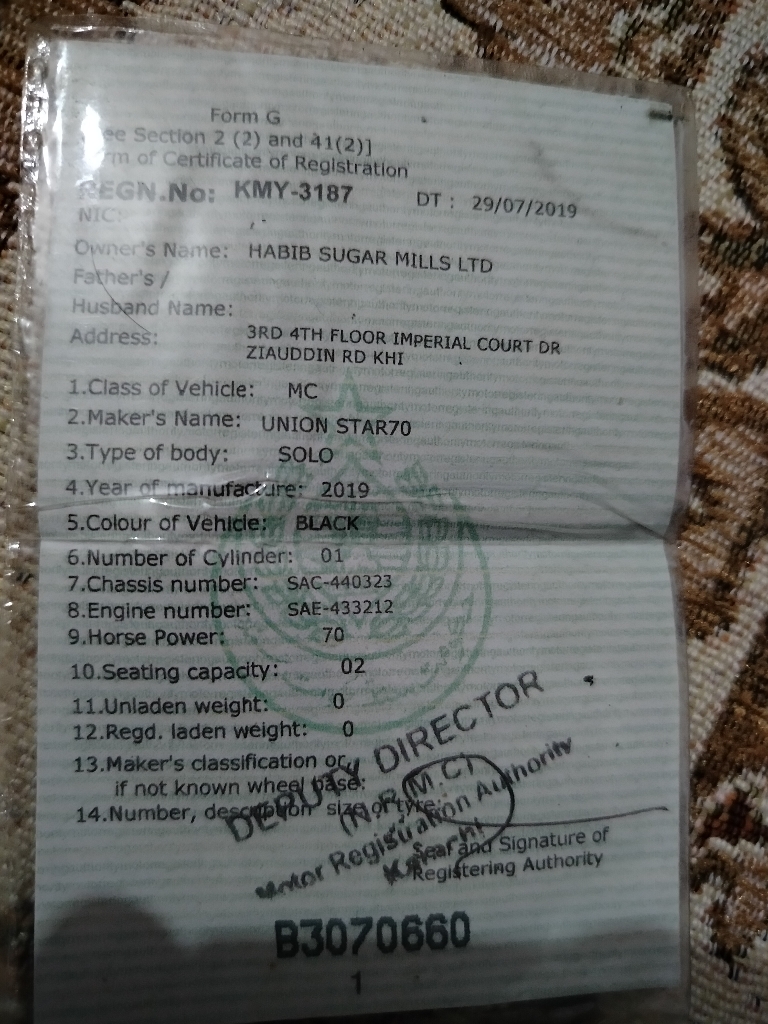 Form G
ee Section 2 (2) and 41(2)]
rm of Certificate of Registration
REGN.No: KMY-3187 DT : 29/07/2019
NIC:
Owner's Name: HABIB SUGAR MILLS LTD
Father's /
Husband Name:
Address: 3RD 4TH FLOOR IMPERIAL COURT DR
ZIAUDDIN RD KHI
1.Class of Vehicle: MC
2.Maker's Name: UNION STAR70
3.Type of body: SOLO
4.Year of manufacture: 2019
5.Colour of Vehicle: BLACK
6.Number of Cylinder: 01
7.Chassis number: SAC-440323
8.Engine number: SAE-433212
9.Horse Power: 70
10.Seating capacity: 02
11.Unladen weight: 0
12.Regd. laden weight: 0
13.Maker's classification or
if not known wheel base:
14.Number, description size of tyre:
DEPUTY DIRECTOR
(N.R.M.C)
Motor Registration Authority
Karachi
Seal and Signature of
Registering Authority
B3070660
1